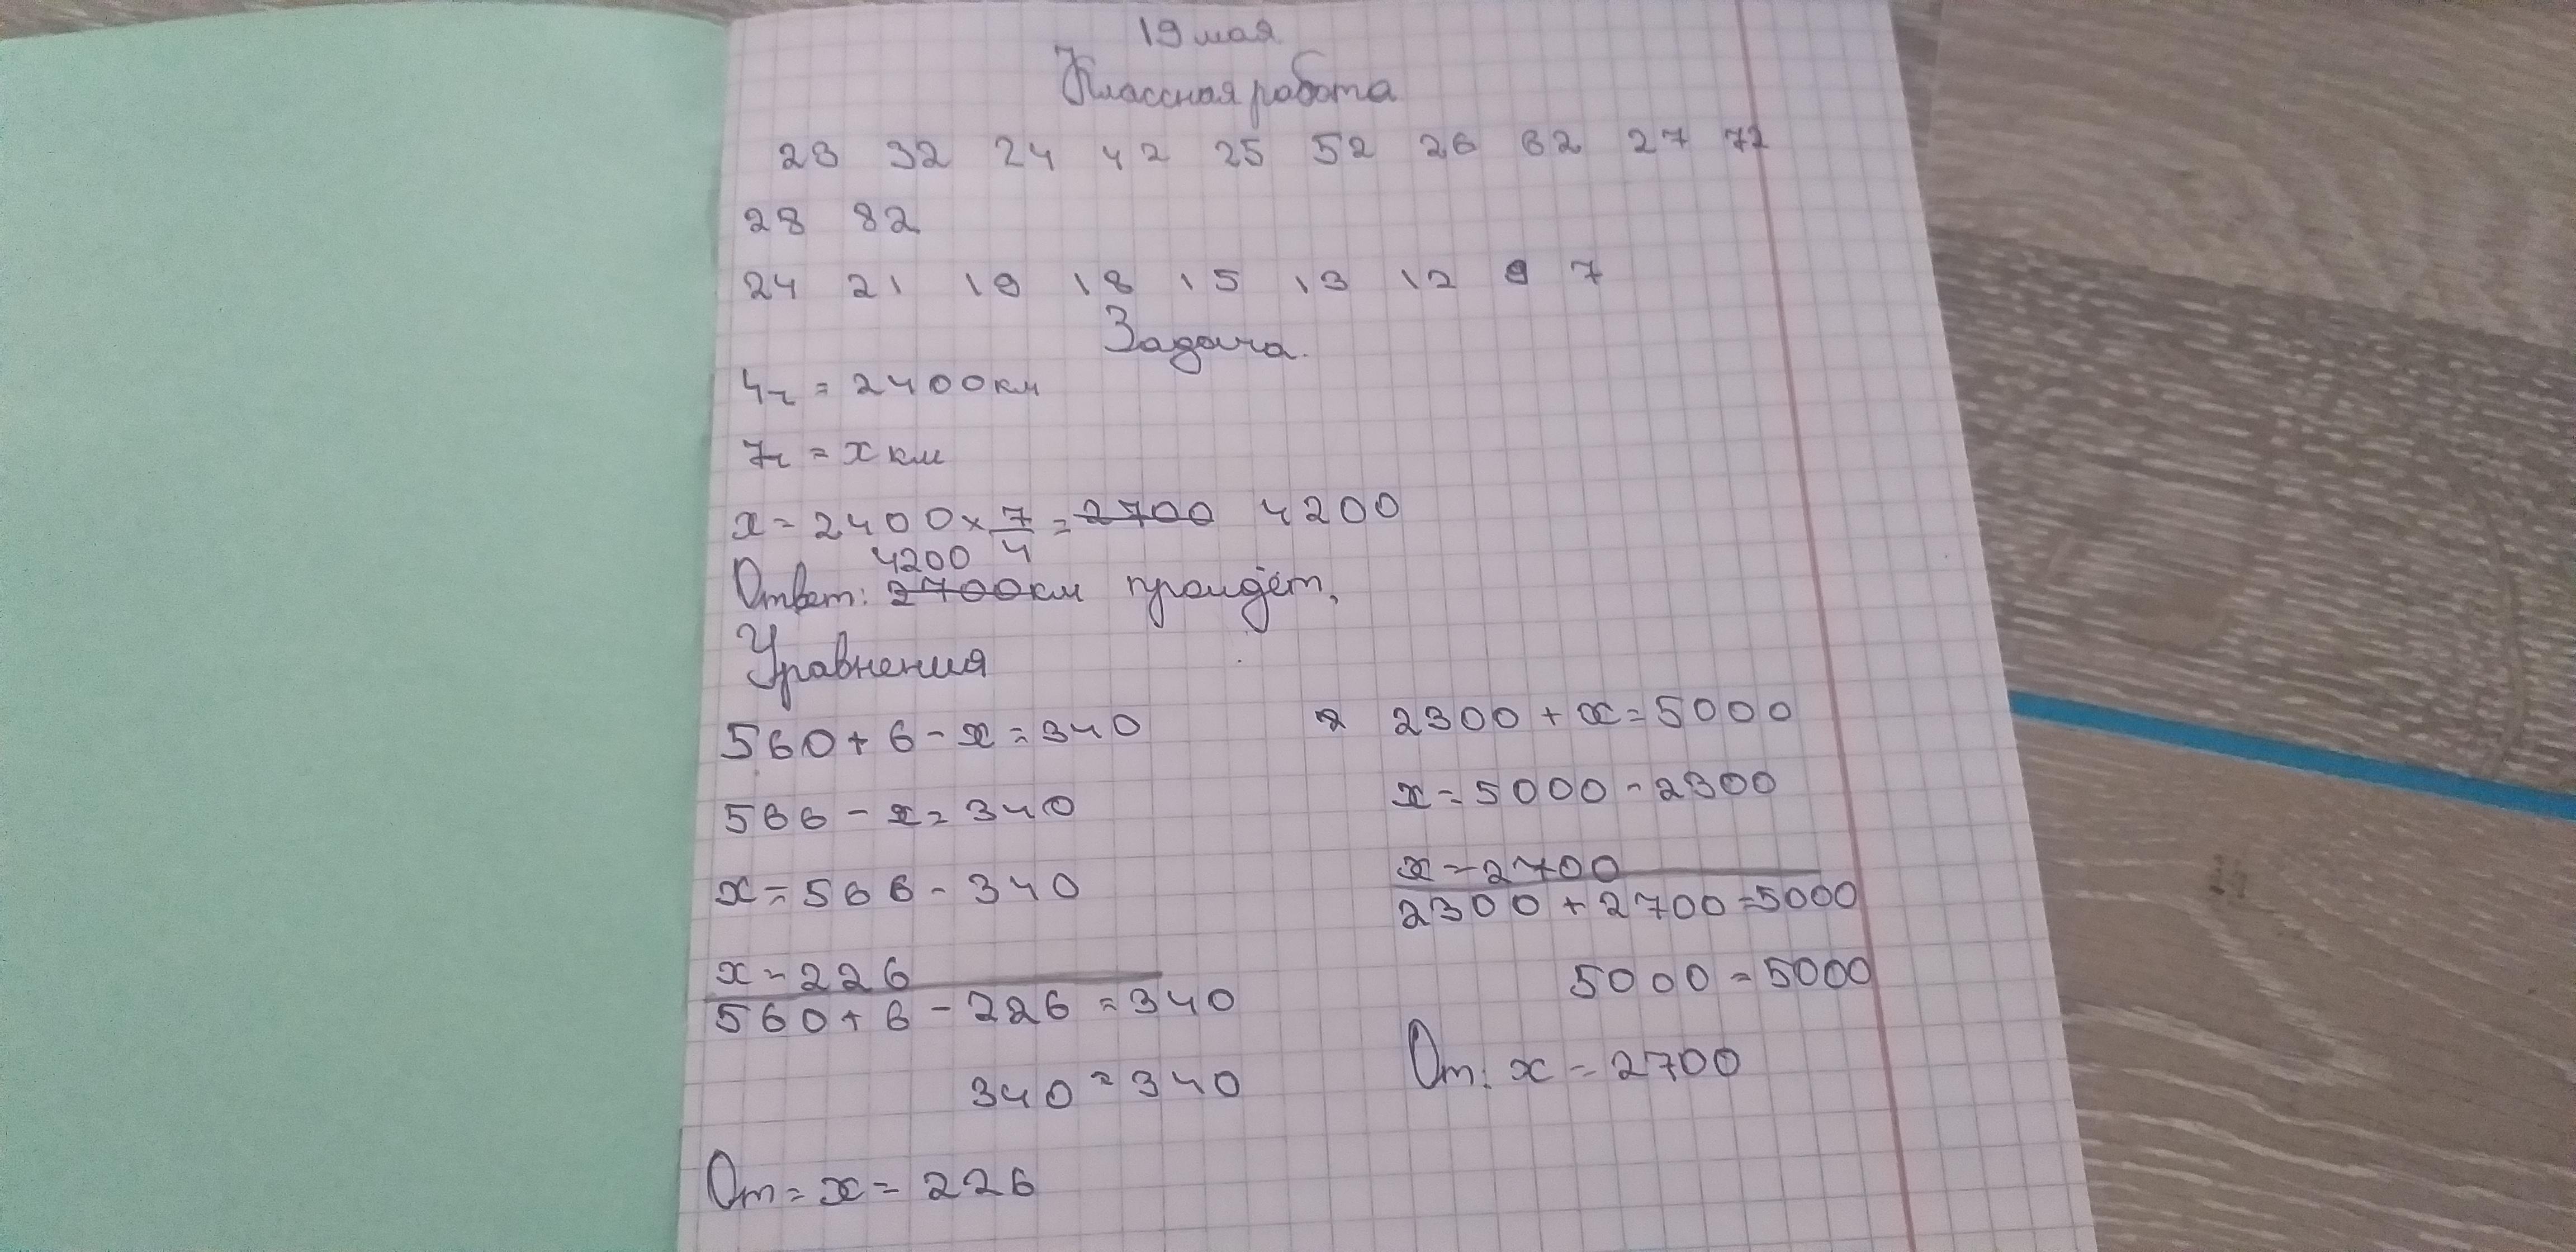 19 мая
Классная работа
23 32 24 42 25 52 26 62 27 72
28 82
24 21 19 18 15 13 12 9 7
Задача.
4ч = 2400км
7ч = x км
x = 2400 × 7/4 = 2700 4200
4200
Ответ: 2700км пройдёт.
Уравнения
560 + 6 - x = 340
566 - x = 340
x = 566 - 340
x = 226
560 + 6 - 226 = 340
340 = 340
От = x = 226
2300 + x = 5000
x = 5000 - 2300
x = 2700
2300 + 2700 = 5000
5000 = 5000
От: x = 2700